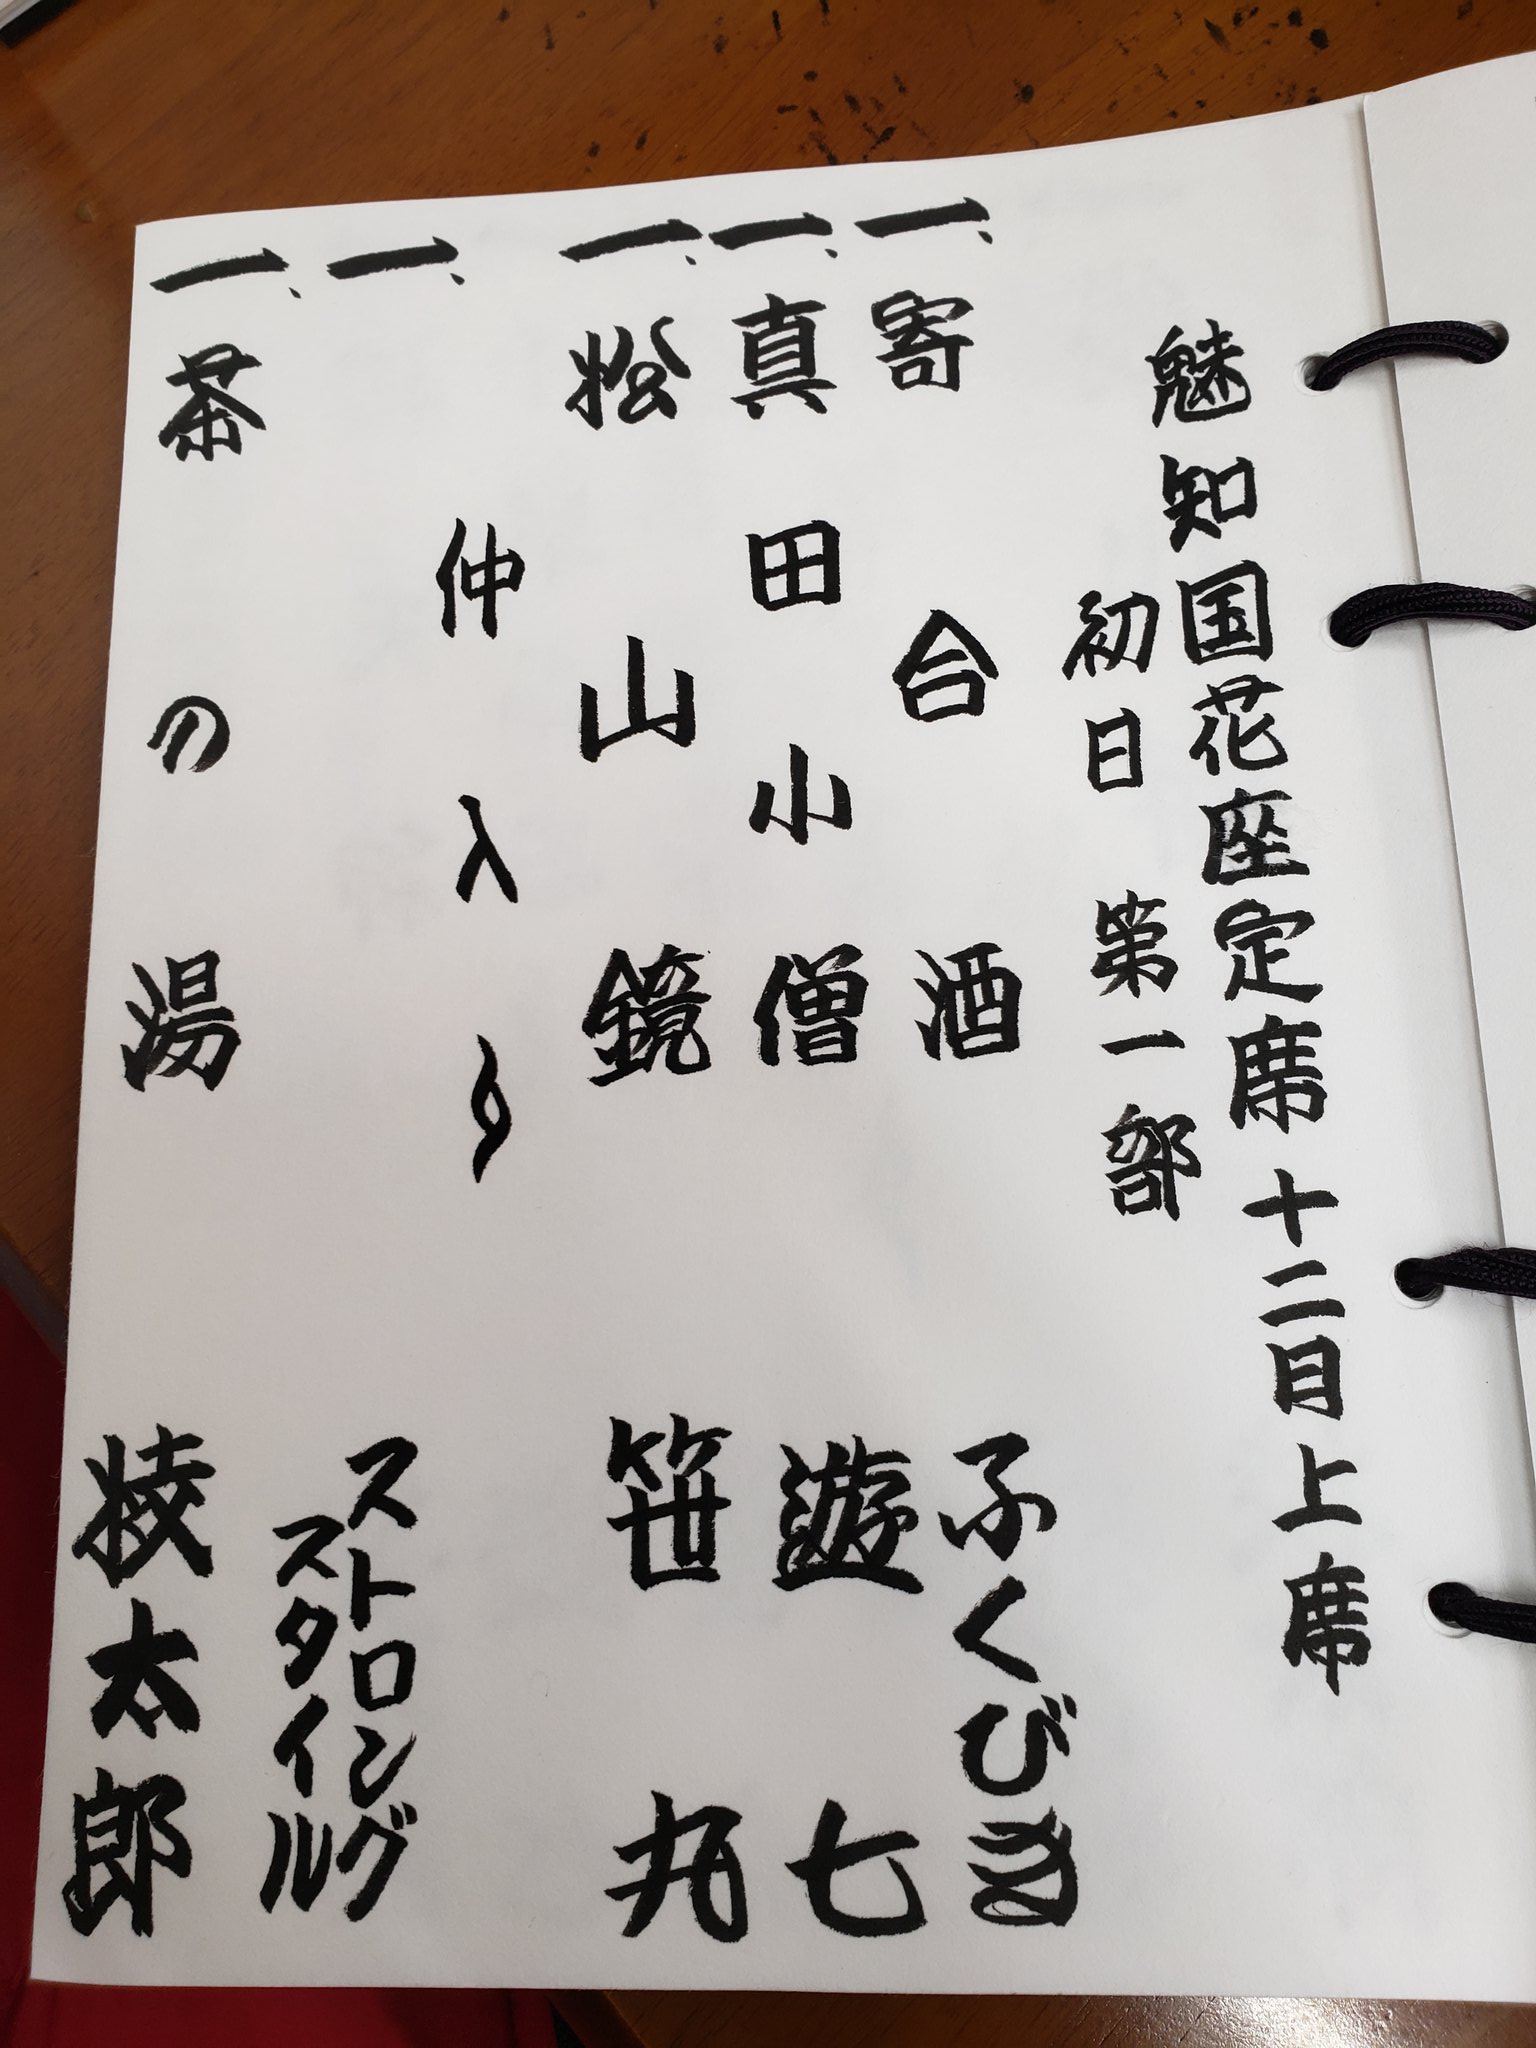 魅知国花座定席 十二月上席
初日 第一部
一、寄合酒 ふくびき
一、真田小僧 遊七
一、松山鏡 笹丸
仲入り
一、 ストロング
スタイル
一、茶の湯 枝太郎